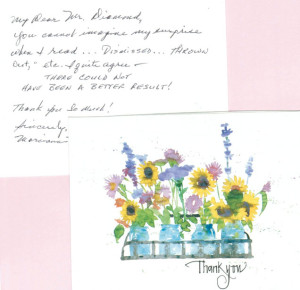 My Dear Mr. Diamond,
You cannot imagine my surprise
when I read ... Dismissed ... THROWN
Out," etc. I quite agree -
THERE COULD NOT
HAVE BEEN A BETTER RESULT!
Thank you so much!
Sincerely,
Marianne
Thank you